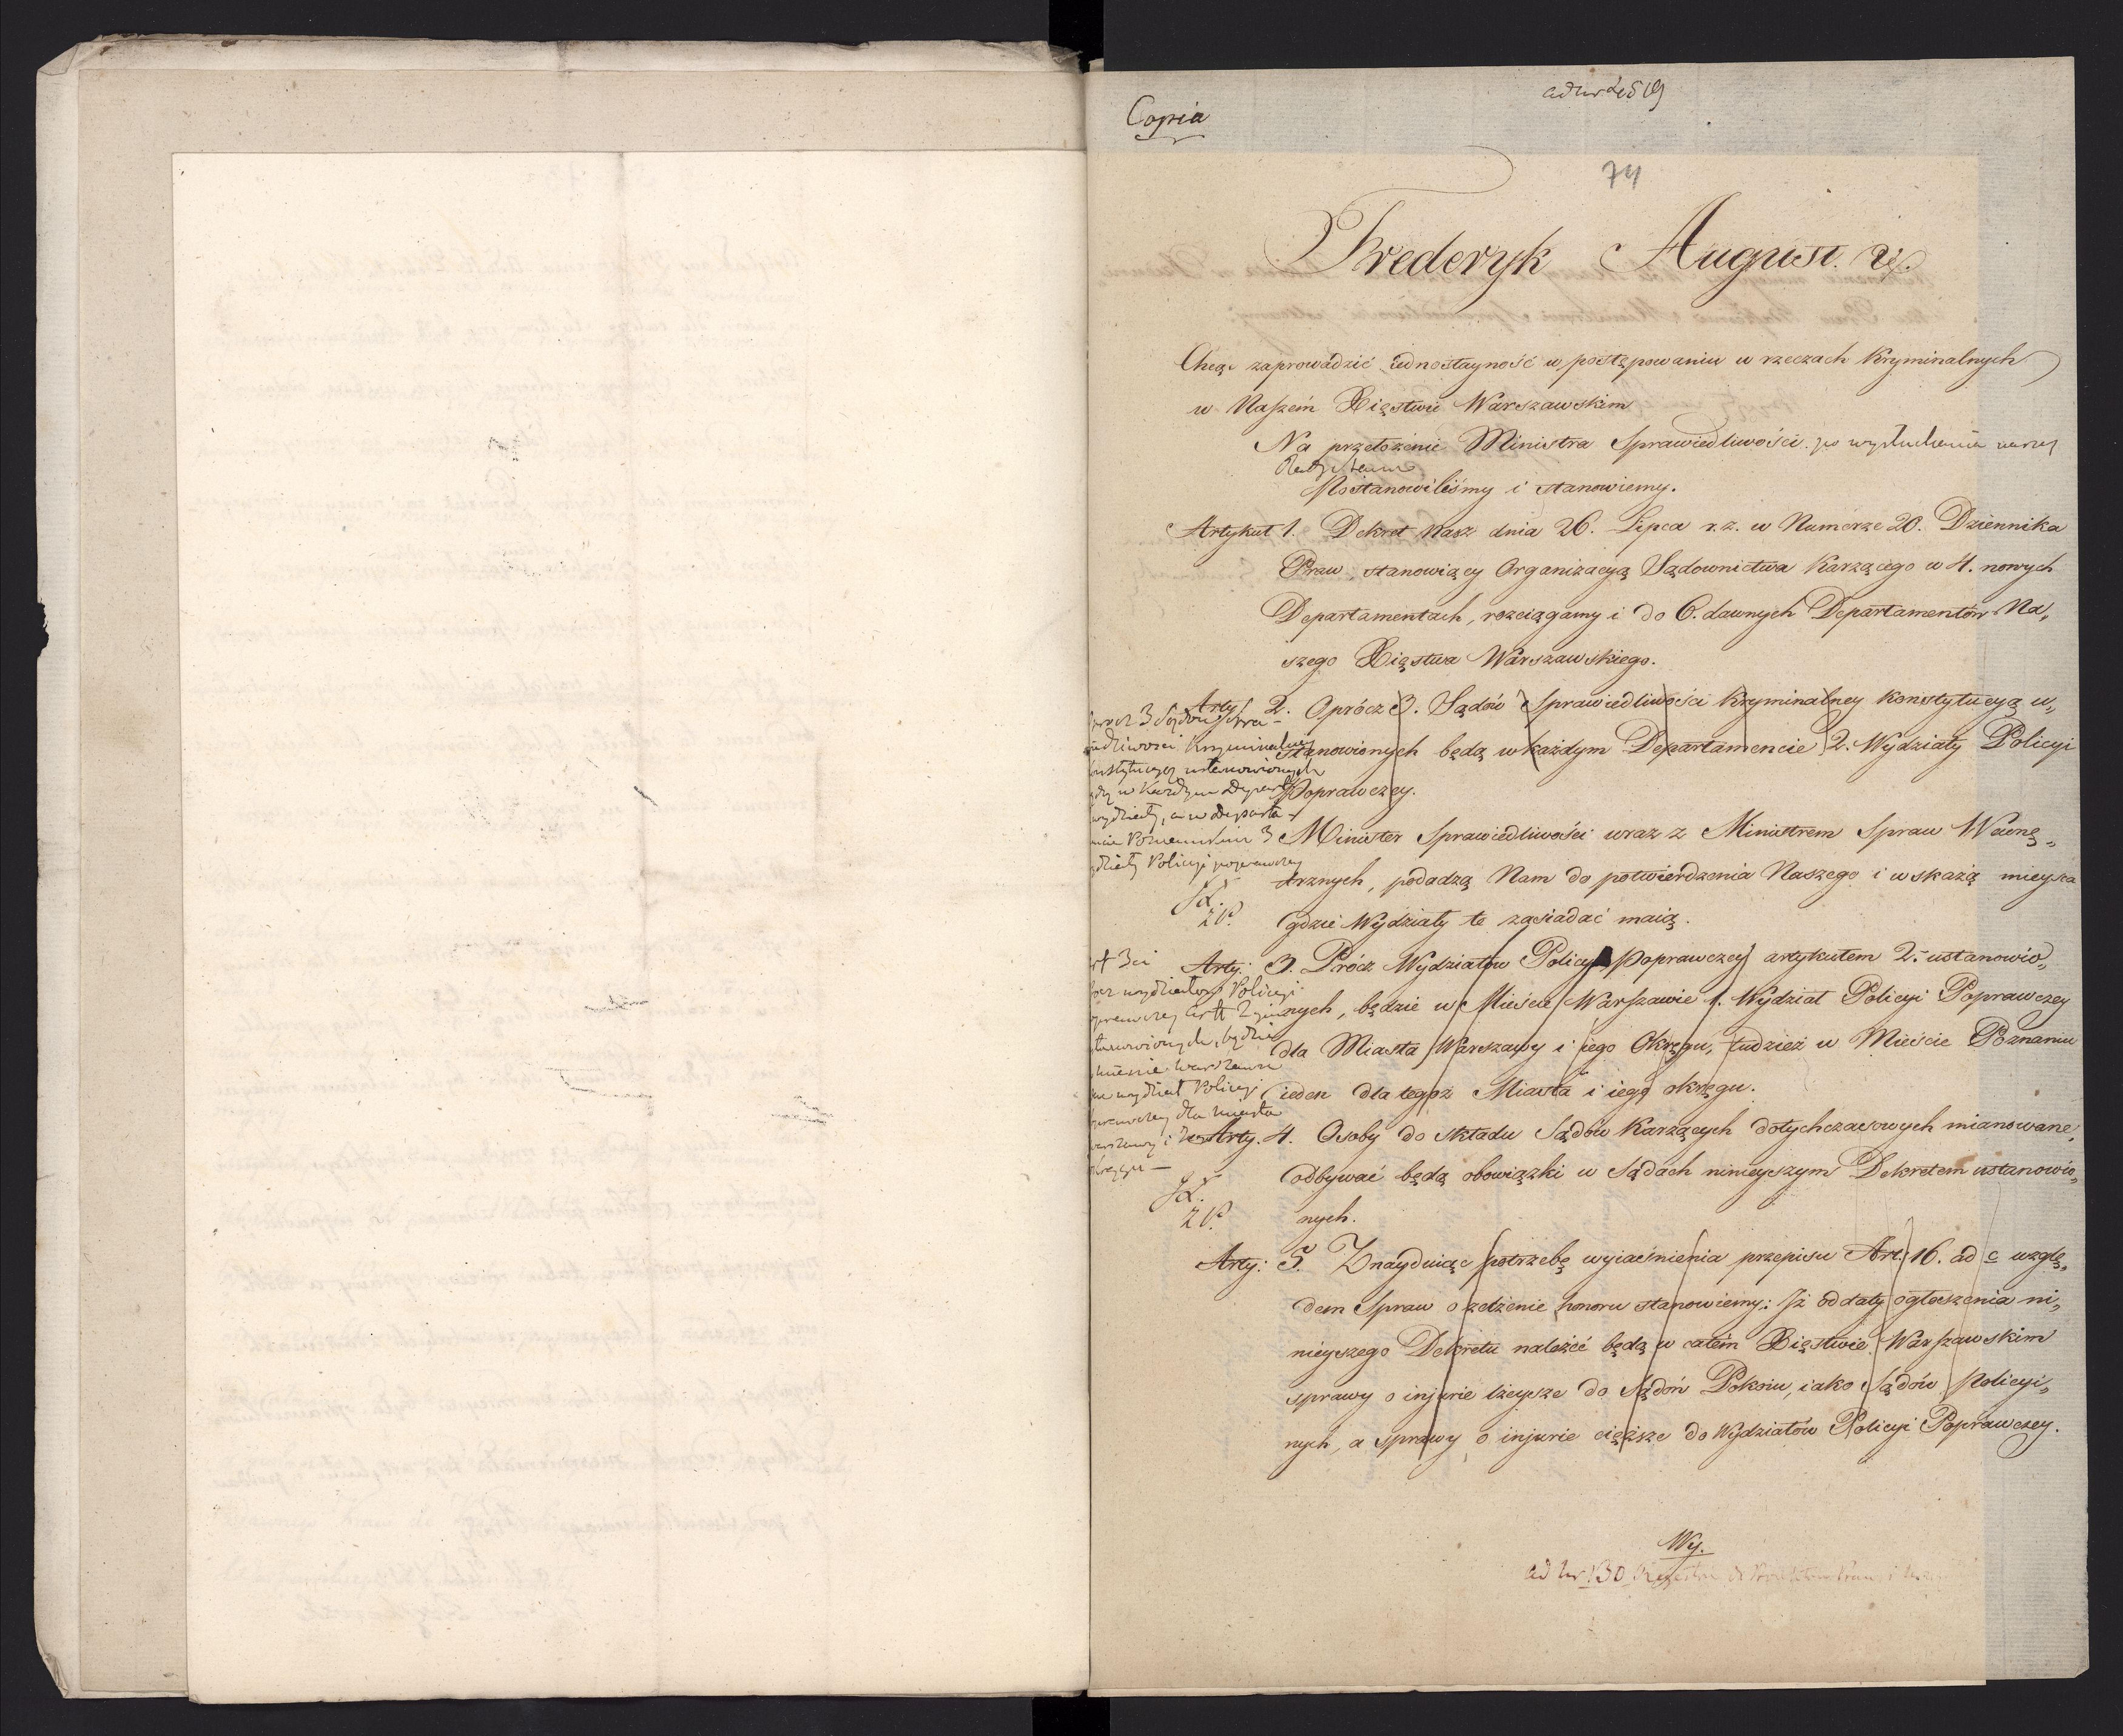 ad nr 2519
Copia
74
Frederyk August. rz.
Chcąc zaprowadzić iednostayność w postępowaniu w rzeczach Kryminalnych
w Naszem Xięstwie Warszawskim
Na przełożenie Ministra Sprawiedliwości po wysłuchaniu naszey
Rady Stanu
Postanowiliśmy i stanowiemy.
Artykuł 1. Dekret Nasz dnia 26. Lipca r.z. w Numerze 20. Dziennika
Praw, stanowiący Organizacyą Sądownictwa Karzącego w 4. nowych
Departamentach, rozciągamy i do 6. dawnych Departamentów Na„
szego Xięstwa Warszawskiego.
Arty. 2. Oprócz 3. Sądów Sprawiedliwości Kryminalney Konstytucyą u„
stanowionych będą w każdym Departamencie 2. Wydziały Policyi
Poprawczey.
3 Sądów Spra-
wiedliwosci Kryminalney
konstytucyą ustanowionych
w Każdym Depart
wydziały, a w Departa-
Poznanskim 3
Policyi poprawczey
Minister Sprawiedliwości wraz z Ministrem Spraw Wewnę„
trznych, podadzą Nam do potwierdzenia Naszego i wskażą mieysca
gdzie Wydziały te zasiadać maią.
Arty: 3. Prócz Wydziałów Policyi Poprawczey artykułem 2. ustanowio„
nych, będzie w Mieście Warszawie 1. Wydział Policyi Poprawczey
dla Miasta Warszawy i iego Okręgu, tudzież w Mieście Poznaniu
ieden dla tegoż Miasta i iego okręgu.
3ci
wydziałow Policyi
Art 2gim
ustanowionych, będzie
Warszawie
wydział Policyi
poprawczey dla miasta
Warszawy i iego
okręgu —
Arty. 4. Osoby do składu Sądów Karzących dotychczasowych mianowane,
odbywać będą obowiązki w Sądach ninieyszym Dekretem ustanowio„
nych.
Arty: 5. Znayduiąc potrzebę wyiaśnienia przepisu Art. 16. ad c wzglę„
dem Spraw o zelżenie honoru stanowiemy: Iż od daty ogłoszenia ni„
nieyszego Dekretu należeć będą w całém Xięstwie Warszawskim
sprawy o injurie lżeysze do Sądów Pokoiu, iako Sądów Policyi„
nych, a sprawy o injurie cięższe do Wydziałów Policyi Poprawczey.
Wy.
ad nr 130